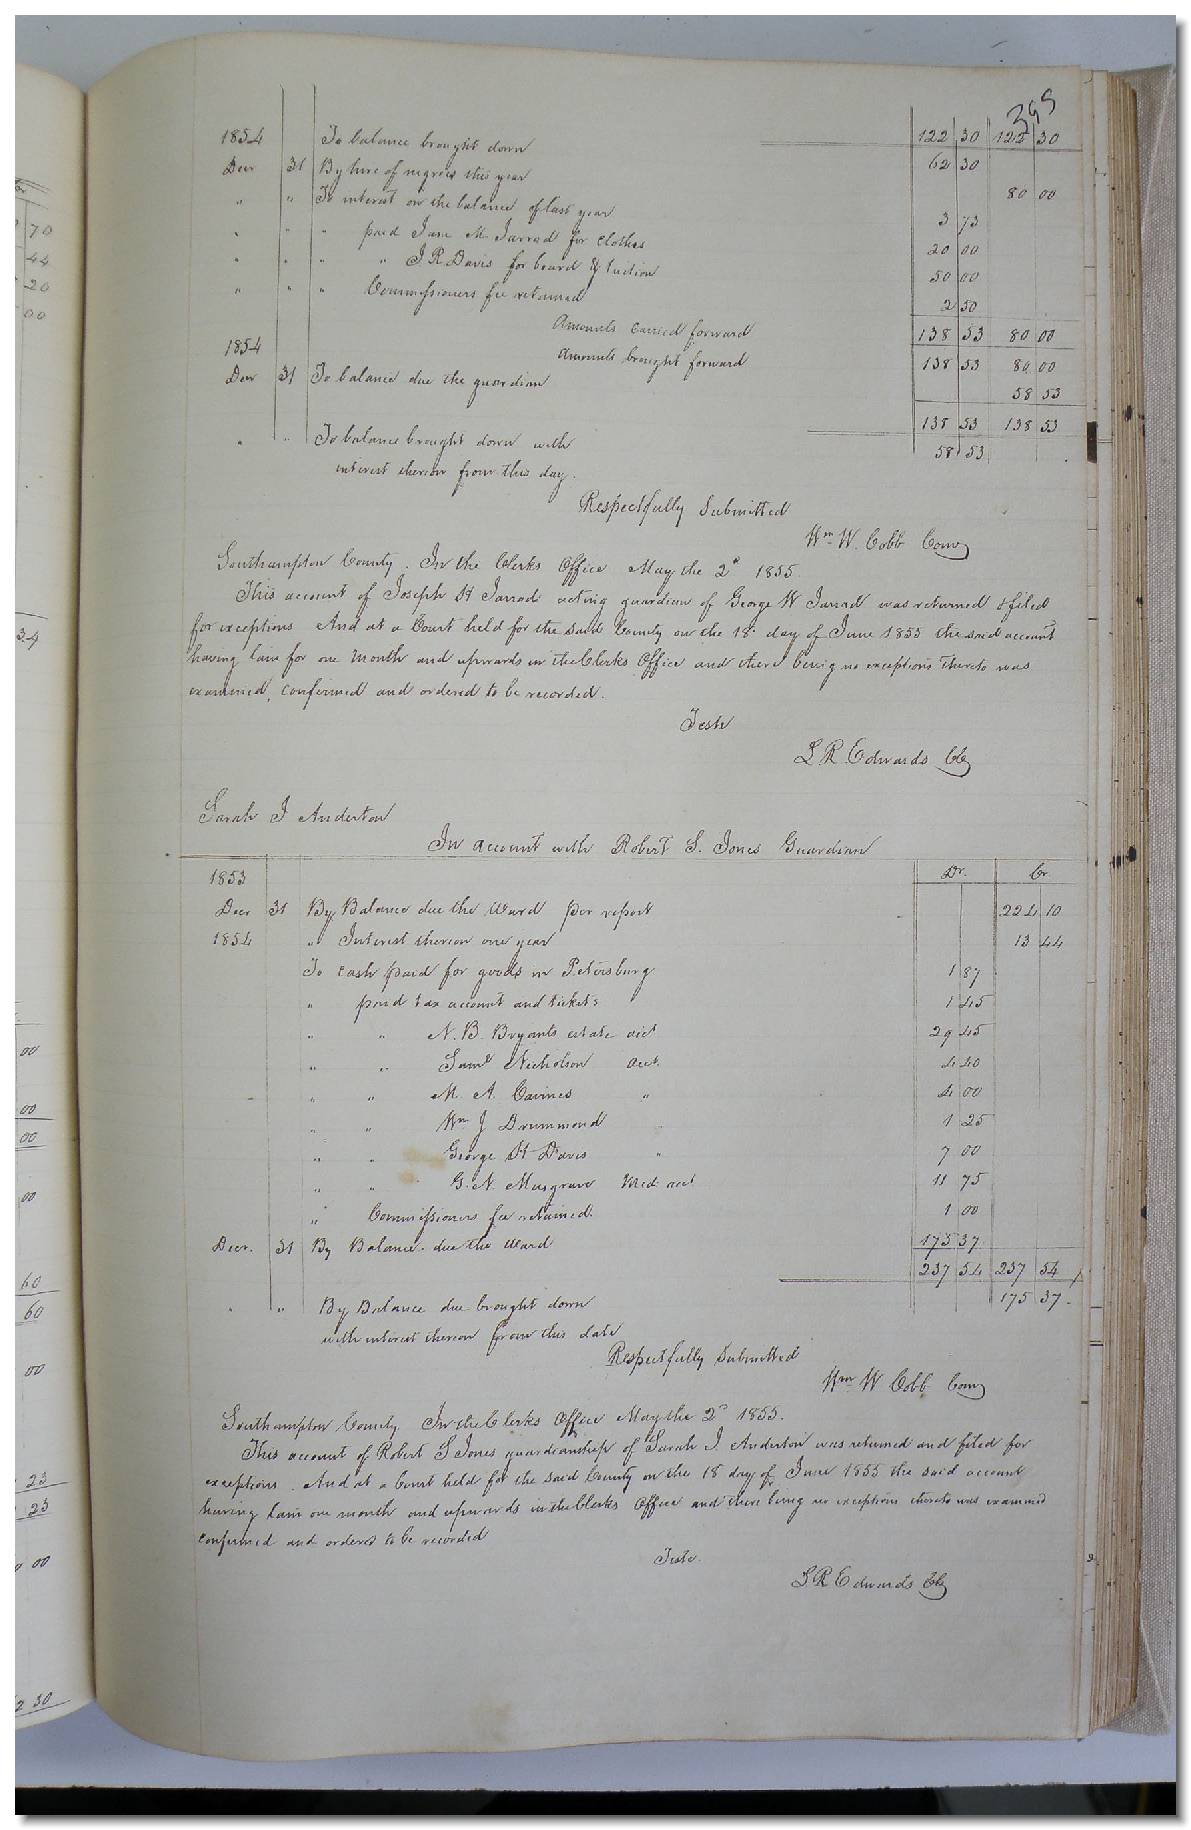 70
44
20
00
34
00
00
00
00
60
60
00
23
23
00
2 30
122 30 122 30
1854 To balance brought down 62 30
Decr 31 By hire of negroes this year 80 00
" " To interest on the balance of last year 3 73
" " " paid Jane M. Jarrad for Clothes 20 00
" " " " J R Davis for board & tuition 50 00
" " " Commissioners fee retained 2 50
Amounts carried forward 138 53 80 00
1854 Amounts brought forward 138 53 80 00
Decr 31 To balance due the guardian 58 53
138 53 138 53
" " To balance brought down with 58 53
interest thereon from this day.
Respectfully Submitted
Wm W. Cobb Comr
Southampton County. In the Clerks Office May the 2d 1855.
This account of Joseph H Jarrad acting guardian of George W Jarrad was returned & filed
for exceptions And at a Court held for the said County on the 18. day of June 1855 the said account
having lain for one month and upwards in the Clerks Office and there being no exceptions thereto was
examined, confirmed and ordered to be recorded.
Teste
L R Edwards Clk
Sarah J Anderton
In account with Robert S. Jones Guardian
1853 Dr. Cr.
Decr 31 By Balance due the Ward per report 224 10
1854 " Interest thereon one year 13 44
To cash paid for goods in Petersburg 1 87
" paid tax account and tickets 1 45
" " N. B. Bryants estate acct 29 45
" " Saml Nicholson acct. 4 40
" " M. A. " 4 00
" " Wm J Drummond " 1 25
" " George H Davis " 7 00
" " G. N. Musgrave Med acct 11 75
" Commissioners fee retained. 1 00
Decr. 31 By Balance due the Ward 175 37
237 54 237 54
" " By Balance due brought down 175 37.
with interest thereon from this date
Respectfully Submitted
Wm W Cobb Comr
Southampton County In the Clerks Office May the 2d 1855.
This account of Robert S Jones guardianship of Sarah J. Anderton was returned and filed for
exceptions. And at a Court held for the said County on the 18 day of June 1855 the said account
having lain one month and upwards in the Clerks Office and there being no exceptions thereto was examined
confirmed and ordered to be recorded
Teste.
L R Edwards Clk